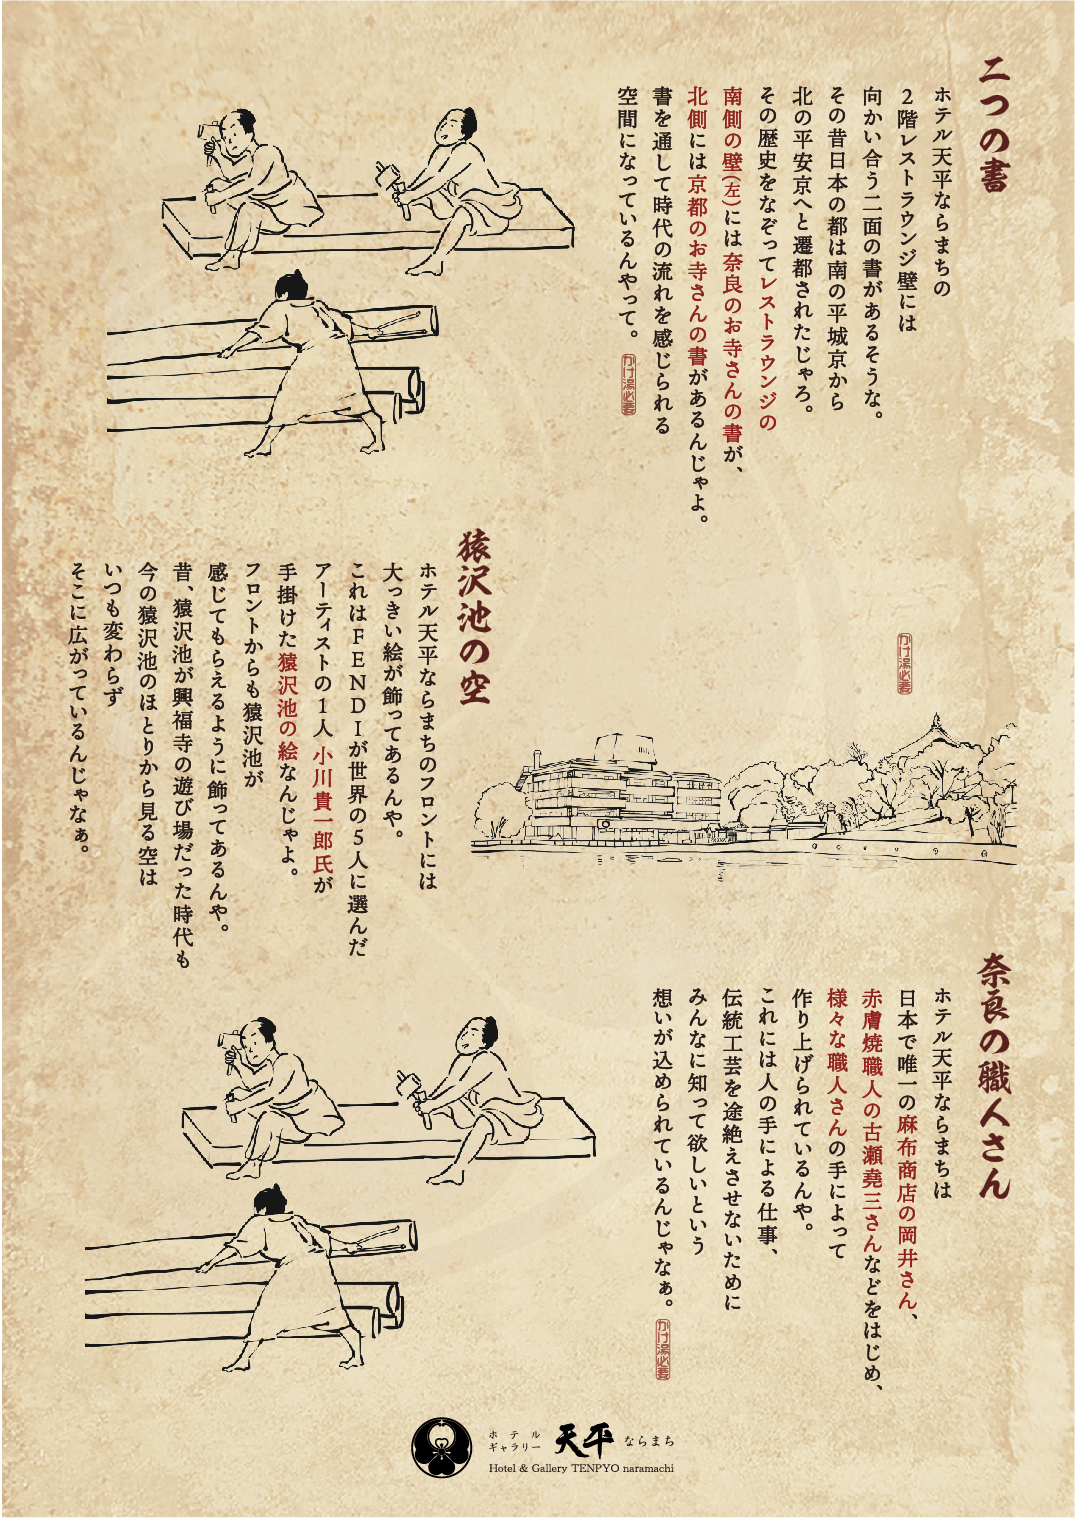 二つの書
ホテル天平ならまちの
2階レストラウンジ壁には
向かい合う二面の書があるそうな。
その昔日本の都は南の平城京から
北の平安京へと遷都されたじゃろ。
その歴史をなぞってレストラウンジの
南側の壁(左)には奈良のお寺さんの書が、
北側には京都のお寺さんの書があるんじゃよ。
書を通して時代の流れを感じられる
空間になっているんやって。
かけ湯必要
猿沢池の空
ホテル天平ならまちのフロントには
大っきい絵が飾ってあるんや。
これはFENDIが世界の5人に選んだ
アーティストの1人 小川貴一郎氏が
手掛けた猿沢池の絵なんじゃよ。
フロントからも猿沢池が
感じてもらえるように飾ってあるんや。
昔、猿沢池が興福寺の遊び場だった時代も
今の猿沢池のほとりから見る空は
いつも変わらず
そこに広がっているんじゃなぁ。
かけ湯必要
奈良の職人さん
ホテル天平ならまちは
日本で唯一の麻布商店の岡井さん、
赤膚焼職人の古瀬堯三さんなどをはじめ、
様々な職人さんの手によって
作り上げられているんや。
これには人の手による仕事、
伝統工芸を途絶えさせないために
みんなに知って欲しいという
想いが込められているんじゃなぁ。
かけ湯必要
ホテル
ギャラリー
天平 ならまち
Hotel & Gallery TENPYO naramachi